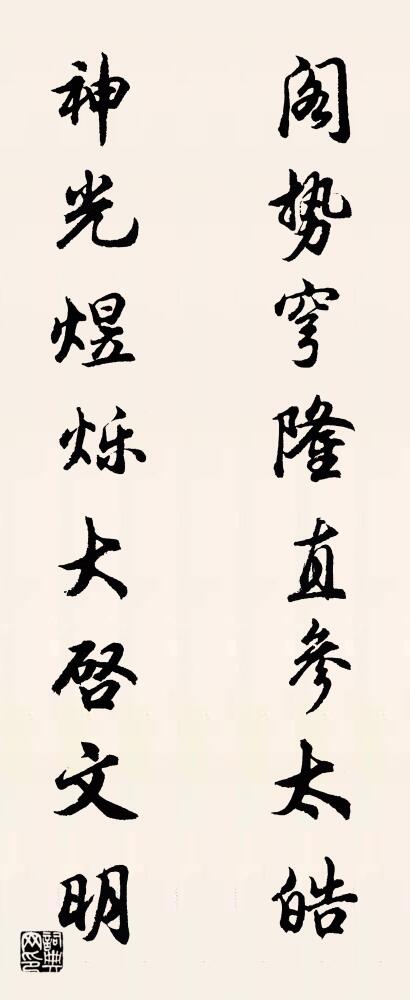 阁势穹隆直参太皓
神光煜烁大启文明